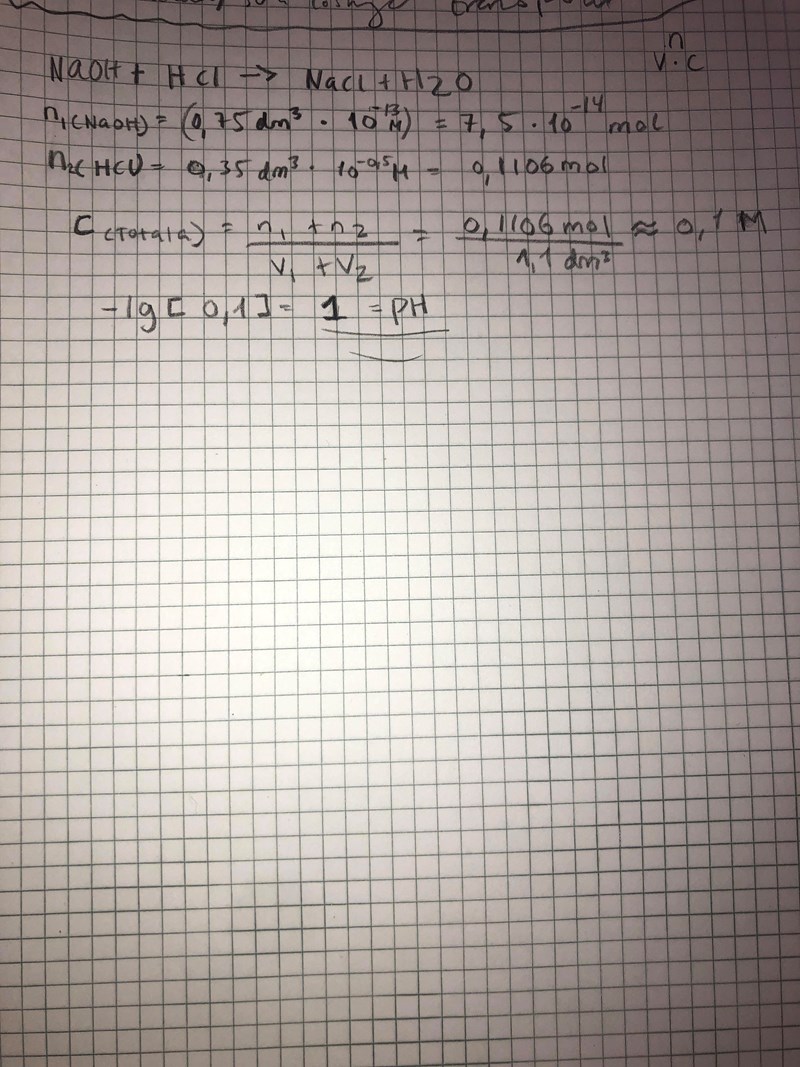 n
V · C
NaOH + HCl → NaCl + H2O
n₁(NaOH) = (0,75 dm³ · 10⁻¹³ M) = 7,5 · 10⁻¹⁴ mol
n₂(HCl) = 0,35 dm³ · 10⁻⁰·⁵ M = 0,1106 mol
C(Totala) = n₁ + n₂ / V₁ + V₂ = 0,1106 mol / 1,1 dm³ ≈ 0,1 M
-lg[0,1] = 1 = PH